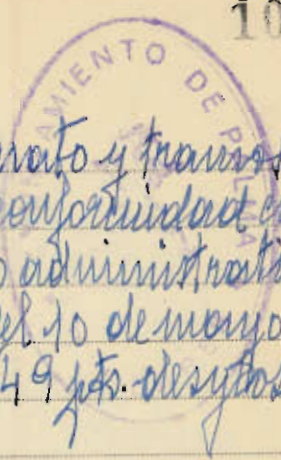 10
AMIENTO DE P
nato y trans
conformidad c
o administrati
del 10 de mayo
49 pts. de